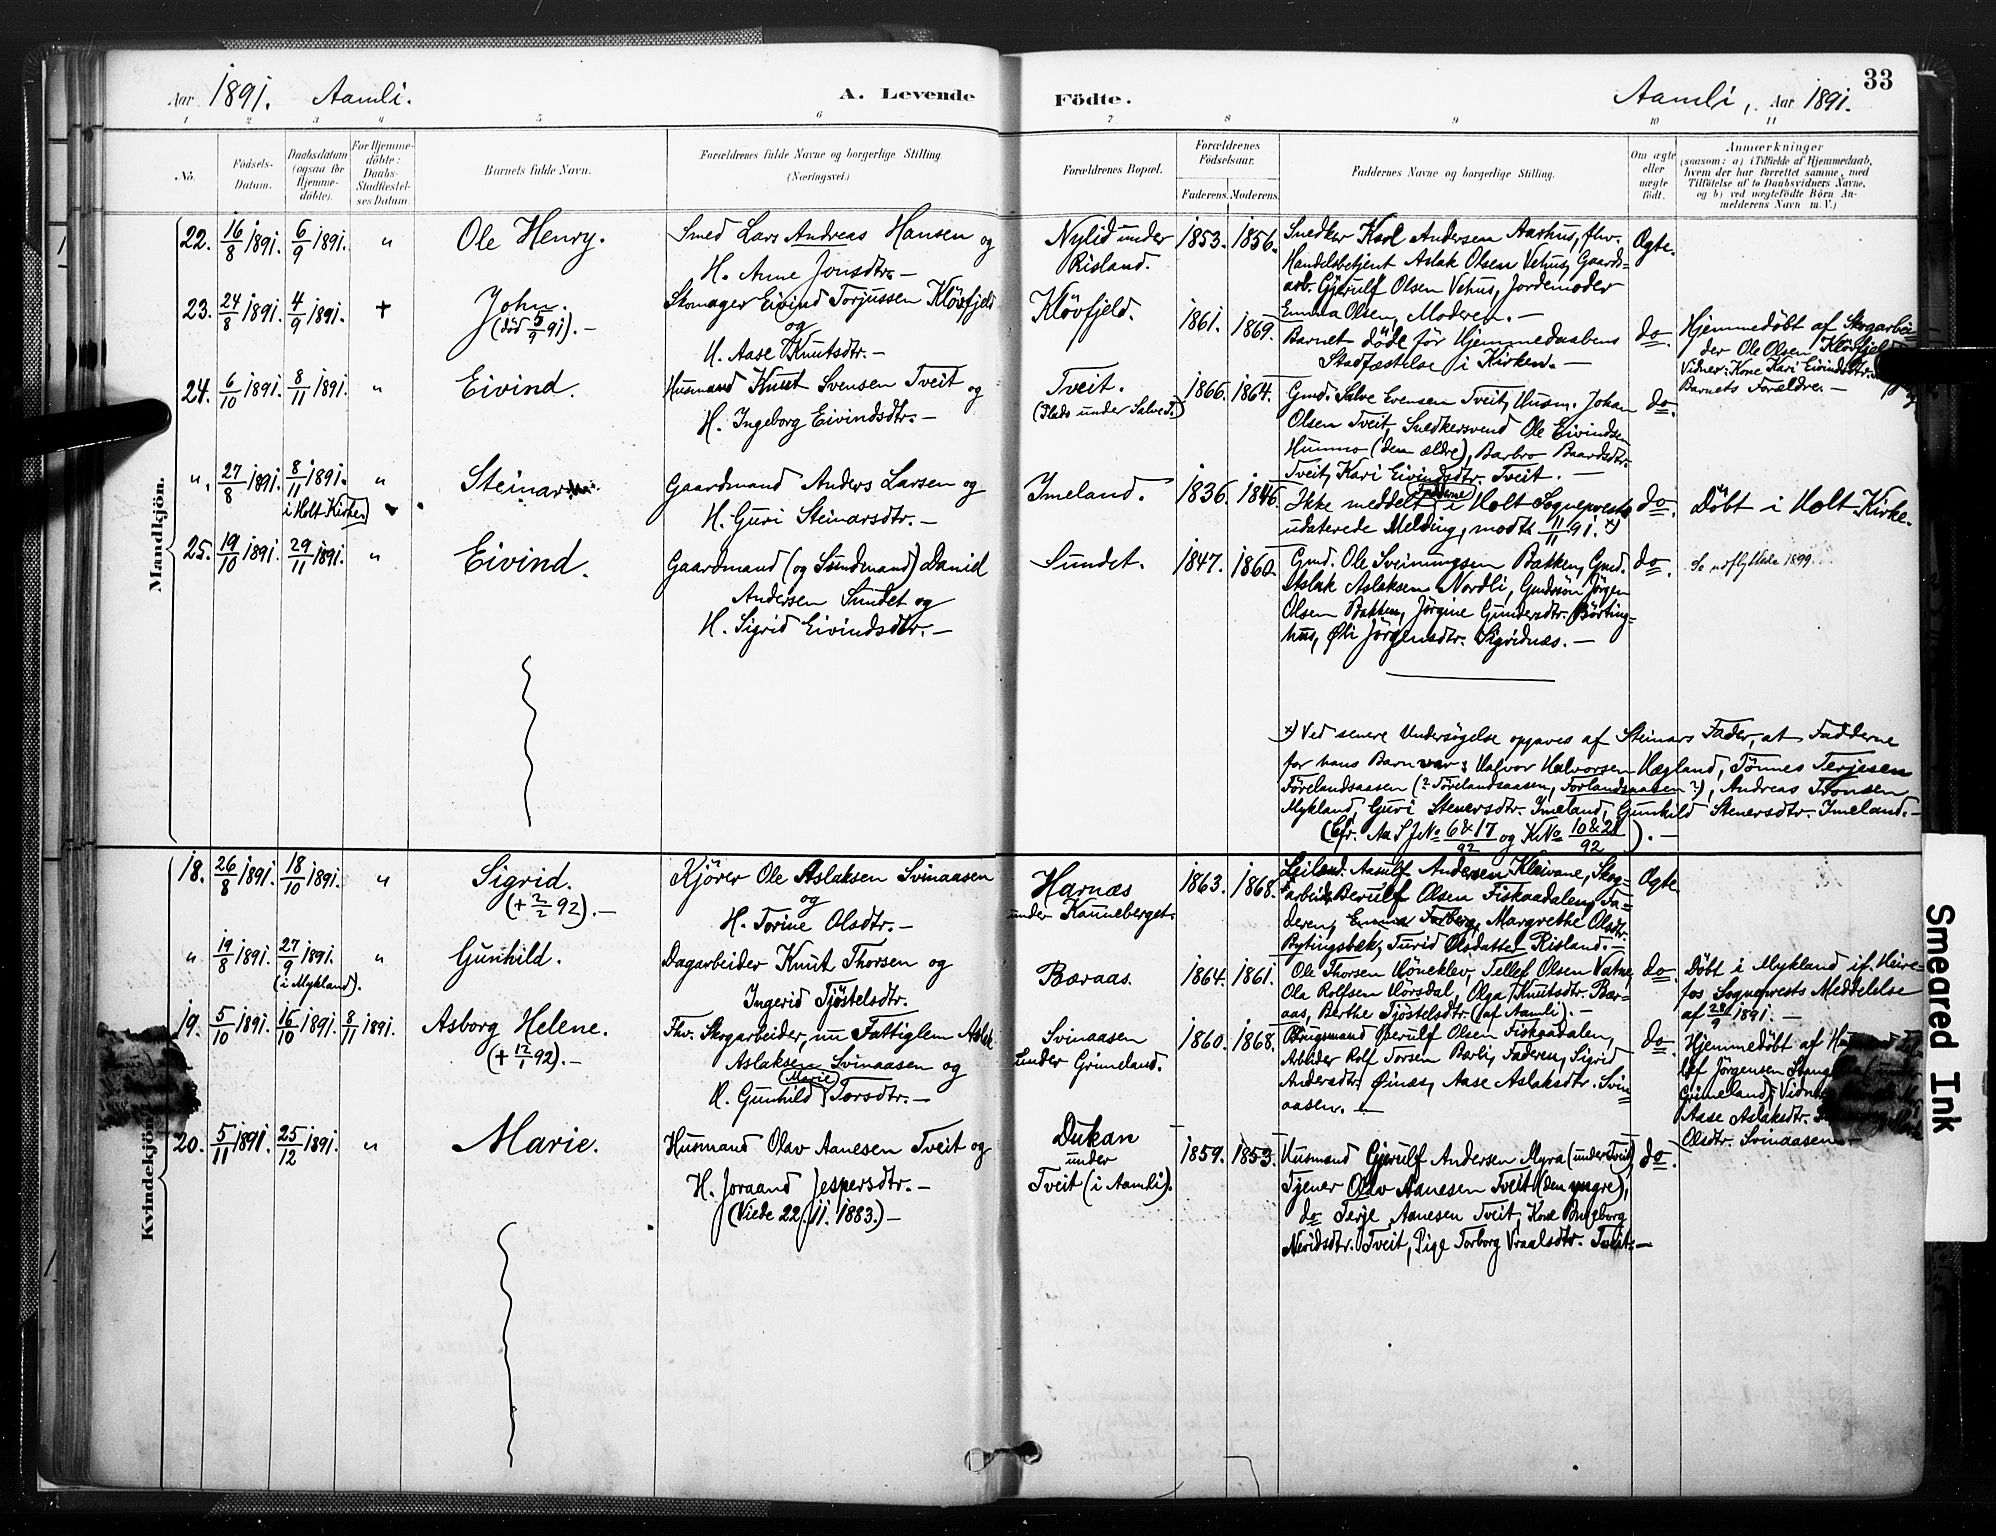 33
Aar 1891. Aamli. A. Levende Födte. Aamli, Aar 1891.
1 2 3 4 5 6 7 8 9 10 11
No.
Födsels-Datum.
Daabsdatum (ogsaa for Hjemme-döbte).
For Hjemme-döbte: Daabs-Stadfæstel-ses Datum.
Barnets fulde Navn.
Forældrenes fulde Navne og borgerlige Stilling. (Næringsvei.)
Forældrenes Bopæl.
Forældrenes Födselsaar.
Faderens. Moderens.
Faddernes Navne og borgerlige Stilling.
Om ægte eller uægte födt.
Anmærkninger
(saasom: a) i Tilfælde af Hjemmedaab,
hvem der har forrettet samme, med
Tilföielse af to Daabsvidners Navne,
og b) ved uægtefödte Börn An-
melderens Navn m. V.)
Mandkjön.
22. 16/8 1891. 6/9 1891. " Ole Henry.
Smed Lars Andreas Hansen og
H. Anne Jonsdtr. —
Nylid under
Risland.
1853. 1856.
Snedker Karl Andersen Aarhus, fhv.
Handelsbetjent Aslak Olsen Vehus, Gaards=
arb. Gjerulf Olsen Vehus, Jordemoder
Emma Olsen, Moderen. —
Ægte.
23. 24/8 1891. 4/9 1891. + John.
(död 5/9 91). —
Skomager Eivind Torjussen Klövfjeld
og
H. Aase Knutsdtr. —
Klövfjeld.
1861. 1869.
Barnet döde för Hjemmedaabens
Stadfæstelse i Kirken. —
do.
Hjemmedöbt af Skogarbei-
der Ole Olsen Klövfjeld
Vidner: Kone Kari Eivindsdtr.
Barnets Forældre. —
24. 6/10 1891. 8/11 1891. " Eivind.
Husmand Knut Svensen Tveit og
H. Ingeborg Eivindsdtr. —
Tveit.
(Plads under Salve T.)
1866. 1864.
Gmd. Salve Evensen Tveit, Husm. Johan
Olsen Tveit, Snedkersvend Ole Eivindsen
Hummo (den ældre), Barbro Baardsdtr.
Tveit, Kari Eivindsdtr. Tveit. —
do.
". 27/8 1891. 8/11 1891. " Steinar
i Holt Kirke)
Gaardmand Anders Larsen og
H. Guri Steinarsdtr. —
Imeland.
1836. 1846.
Fadderne
Ikke meddelt i Holt Sogneprests
udaterede Melding, modt. 11/11 91. *)
do.
Döbt i Holt Kirke.
25. 19/10 1891. 29/11 1891. " Eivind.
Gaardmand (og Sundmand) Daniel
Andersen Sundet og
H. Sigrid Eivindsdtr. —
Sundet.
1847. 1860.
Gmd. Ole Sveinungsen Bakken, Gmd.
Aslak Aslaksen Nordli, Gmdssön Jörgen
Olsen Bakken, Jörgine Gundersdtr. Börting=
hus, Öli Jörgensdtr. Sigridnæs. —
do.
Se udflyttede 1899.
*) Ved senere Undersögelse opgaves af Steinars Fader, at Fadderne
for hans Barn var: Halvor Halvorsen Hægland, Tönnes Terjesen
Förelandsaasen (? Törelandsaasen, Forlandsaasen?), Andreas Tronsen
Mykland, Guri Stenersdtr. Imeland, Gunhild Stenersdtr. Imeland. —
(Cfr. Aa S J No 6 & 17/92 og K No 10 & 21/92). —
Kvindekjön.
18. 26/8 1891. 18/10 1891. " Sigrid.
(+ 2/2 92). —
Kjörer Ole Aslaksen Svinaasen
og
H. Torine Olsdtr. —
Harnæs
under Kanneberget.
1863. 1868.
Leilænd. Aanulf Andersen Kleivane, Skog=
arbeider Berulf Olsen Fiskaadalen, Fa=
deren, Emma Forberg, Margrethe Olsdtr.
Bytingsbæk, Turid Olsdatter Risland. —
Ægte
" 19/8 1891. 27/9 1891. " Gunhild.
(i Mykland).
Dagarbeider Knut Thorsen og
Ingerid Tjöstelsdtr.
Bæraas.
1864. 1861.
Ole Thorsen Höneklev, Tellef Olsen Vatne,
Ola Rolfsen Hörsdal, Olga Knutsdtr. Bær-
aas, Berthe Tjöstelsdtr. (af Aamli). —
do.
Döbt i Mykland if. Heire-
fos Sogneprests Meddelelse
af 28/9 1891. —
19. 5/10 1891. 16/10 1891. 8/11 1891. Asborg Helene.
(+ 12/1 92). —
Fhv. Skogarbeider, nu Fattiglem Aslak
Aslaksen Svinaasen og
H. Gunhild (Marie) Torsdtr. —
Svinaasen
under Grimeland.
1860. 1868.
Brugsmand Berulf Olsen Fiskaadalen,
Arbeider Rolf Torsen Barli, Faderen, Sigrid
Andersdtr. Öinæs, Aase Aslaksdtr. Svin=
aasen. —
do.
Hjemmedöbt af
Jörgensen
Grimeland)
Aase Aslaksdtr.
Olsdtr. Svinaasen —
20. 5/11 1891. 25/12 1891. " Marie.
Husmand Olav Aanesen Tveit og
H. Joraand Jespersdtr. —
(Viede 22. 11. 1883.) —
Dukan
under
Tveit (i Aamli).
1859. 1853.
Husmand Gjerulf Andersen Myra (under Tveit)
Tjener Olav Aanesen Tveit (den yngre),
do Terje Aanesen Tveit, Kone Ingeborg
Neridsdtr. Tveit, Pige Torborg Vraalsdtr. Tveit. —
do.
Smeared Ink